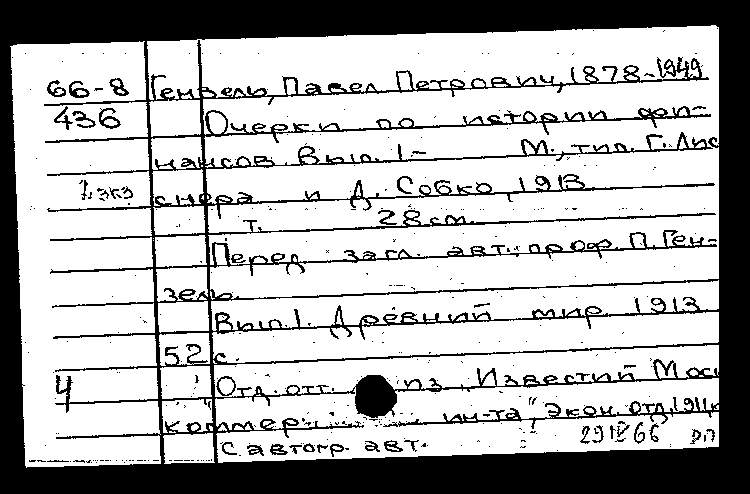 66-8 Гензель, Павел Петрович, 1878-1949
436 Очерки по истории фи-
нансов. Вып. 1- М., тип. Г. Лис
2 экз снера и Д. Собко, 1913.
т. 28 см.
Перед загл. авт.: проф. П. Ген-
зель.
Вып. 1. Древний мир. 1913
52 с.
4 Отд. отт. из „Известий Мос
коммер. ин-та", Экон. отд. 1911,
С автогр. авт. 66